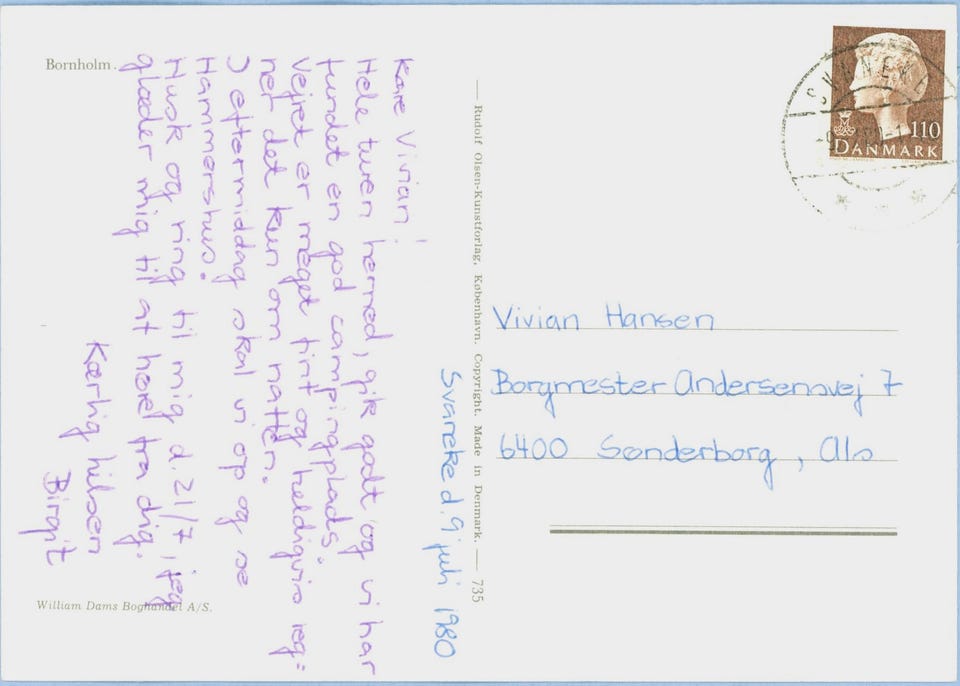 Bornholm.
Svaneke d. 9 juli 1980
Kære Vivian!
Hele turen herned, gik godt og vi har
fundet en god campingplads.
Vejret er meget fint og heldigvis reg=
net det kun om natten.
I eftermiddag skal vi op og se
Hammershus.
Husk og ring til mig d. 21/7, jeg
glæder mig til at høre fra dig.
Kærlig hilsen
Birgit
William Dams Boghandel A/S.
Rudolf Olsen-Kunstforlag, København. Copyright. Made in Denmark. — 735
SVANEKE
110
DANMARK
Vivian Hansen
Borgmester Andersensvej 7
6400 Sønderborg, Als